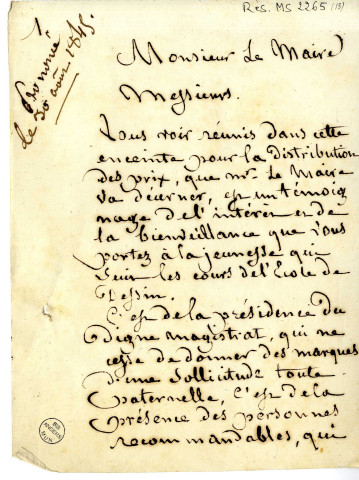 Rés. MS 2265 (13)
1
Prononcé
le 30 août 1845.
Monsieur Le Maire
Messieurs.
Vous voir réunis dans cette
enceinte pour la distribution
des prix, que mr. Le Maire
va décerner, est un témoig
nage de l'intérêt et de
la bienveillance que vous
portez à la jeunesse qui
suit les cours de l'Ecole de
Dessin.
C'est de la présidence du
Digne magistrat, qui ne
cesse de donner des marques
d'une sollicitude toute
Paternelle, c'est de la
présence des personnes
recommandables, qui